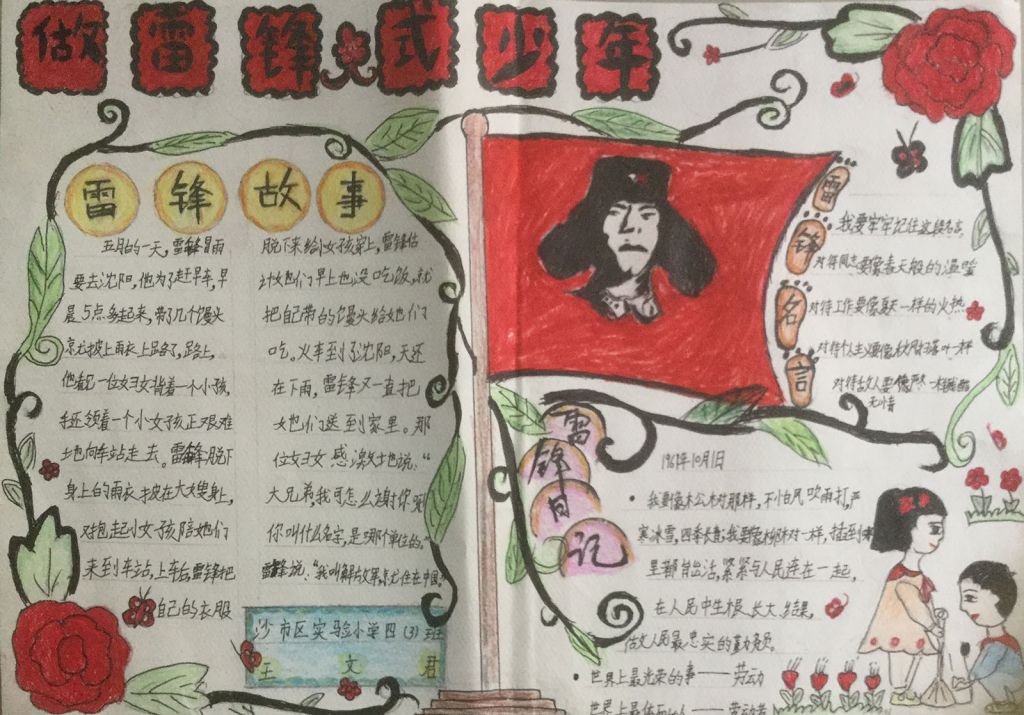 做雷锋式少年
雷锋故事
五月的一天,雷锋冒雨
要去沈阳,他为了赶早车,早
晨5点多起来,带了几个馒头
就披上雨衣上路了,路上,
他看见一位妇女背着一个小孩,
手还领着一个小女孩正艰难
地向车站走去。雷锋脱下
身上的雨衣披在大嫂身上,
对抱起小女孩陪她们
来到车站,上车后,雷锋把
自己的衣服
脱下来给小女孩穿上,雷锋估
计她们早上也没吃饭,就
把自己带的馒头给她们
吃。火车到了沈阳,天还
在下雨,雷锋又一直把
她们送到家里。那
位妇女感激地说:“
大兄弟,我可怎么谢你呢
你叫什么名字,是哪个单位的。”
雷锋说:“我叫解放军,就住在中国
沙市区实验小学四(3)班
王文君
雷锋名言
我要牢牢记住这段名言,
对待同志要像春天般的温暖
对待工作要像夏天一样的火热
对待个人主义要像秋风扫落叶一样
对待敌人要像严冬一样残酷
无情
雷锋日记
1961年10月1日
• 我要像松树那样,不怕风吹雨打,严
寒冰雪,四季长青;我要像杨柳树一样,插到哪
里都能活,紧紧与人民连在一起,
在人民中生根、长大、结果,
做人民最忠实的勤务员。
• 世界上最光荣的事——劳动
世界上最体面的人——劳动者